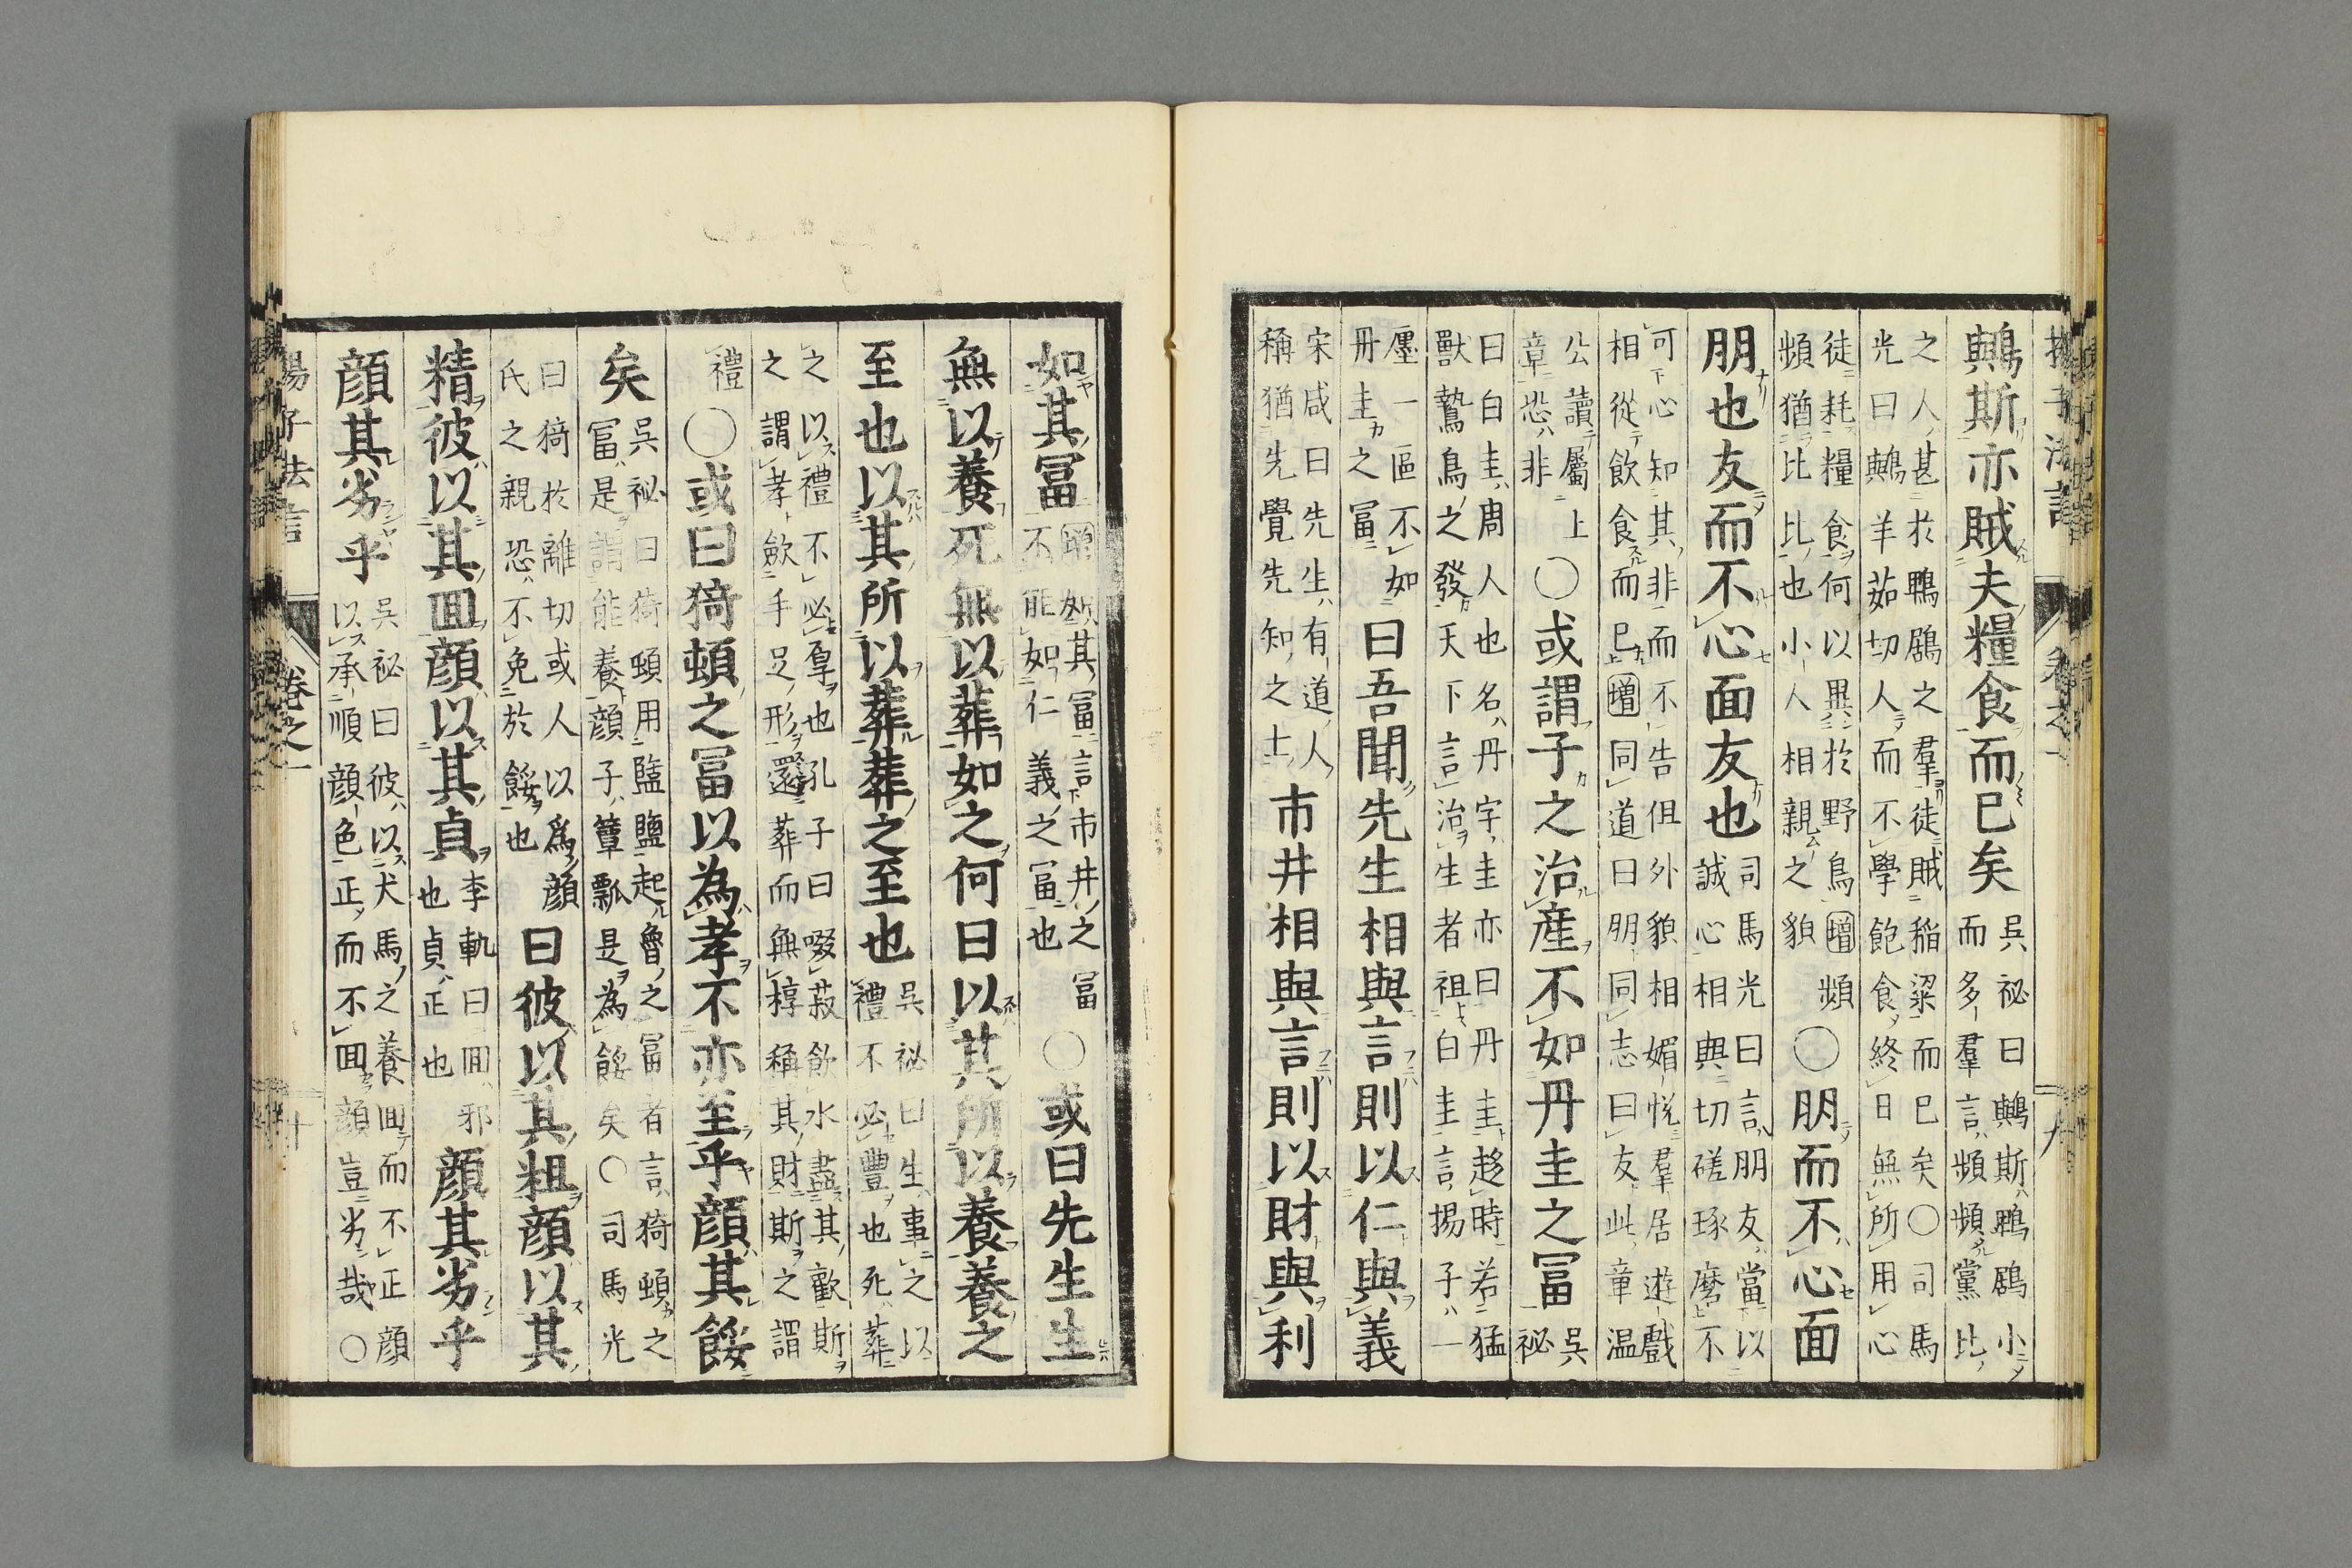 鷡斯亦賊夫糧食而已矣 吳祕曰鷡斯鵯鶋小
而多羣言頻頻黨比
之人甚於鵯鶋之羣徒賊稻粱而已矣〇司馬
光曰鷡羊茹切人而不學飽食終日無所用心
徒耗糧食何以異於野鳥增頻
頻猶比比也小人相親之貌
〇朋而不心面
朋也友而不心面友也 司馬光曰言朋友當以
誠心相與切磋琢磨不
可心知其非而不告但外貌相媚悅羣居遊戲
相從飲食而已增同道曰朋同志曰友此章温
公讀屬上
章恐非
〇或謂子之治產不如丹圭之富 吳
祕
曰白圭周人也名丹字圭亦曰丹圭趍時若猛
獸鷙鳥之發天下言治生者祖白圭言揚子一
廛一區不如
丹圭之富
曰吾聞先生相與言則以仁與義
宋咸曰先生有道人
稱猶先覺先知之士
市井相與言則以財與利
如其富 其富言市井之富
不能如仁義之富也
〇或曰先生生
無以養死無以葬如之何曰以其所以養養之
至也以其所以葬葬之至也 吳祕曰生事之以
禮不必豐也死葬
之以禮不必厚也孔子曰啜菽飲水盡其歡斯
之謂孝斂手足形還葬而無椁稱其財斯之謂
禮
〇或曰猗頓之富以為孝不亦至乎顔其餒
矣 吳祕曰猗頓用盬鹽起魯之富者言猗頓之
富是謂能養顔子簞瓢是為餒矣〇司馬光
曰猗於離切或人以爲顔
氏之親恐不免於餒也
曰彼以其粗顔以其
精彼以其囬顔以其貞 李軌曰囬邪
也貞正也
顔其劣乎
顔其劣乎 吳祕曰彼以犬馬之養囬而不正顔
以承順顔色正而不囬顔豈劣哉〇
揚子法言 卷之一 九
揚子法言 卷之一 十